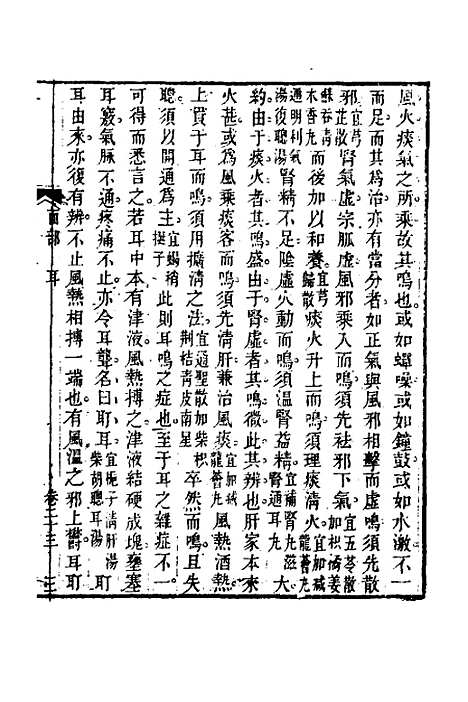 風火痰氣之所乘故其鳴也或如蟬噪或如鐘鼓或如水激不一
而足而其為治亦有當分者如正氣與風邪相擊而虛鳴須先散
邪宜芎芷散腎氣虛宗脈虛風邪乘入而鳴須先祛邪下氣宜五苓散加枳橘姜
蘇吞青木香丸而後加以和養宜芎歸散痰火升上而鳴須理痰清火宜加減龍薈丸
通明利氣湯復聰湯腎精不足陰虛火動而鳴須溫腎益精宜補腎丸滋腎通耳丸大
約由于痰火者其鳴盛由于腎虛者其鳴微此其辨也肝家本來
火甚或為風乘痰客而鳴須先清肝兼治風痰宜加減龍薈丸風熱酒熱
上貫于耳而鳴須用擴清之法宜通聖散加柴枳荊桔青皮南星卒然而鳴且失
聰須以開通為主宜蝎稍挺子此則耳鳴之症也至于耳之雜症不一
可得而悉言之若耳中本有津液風熱搏之津液結硬成塊壅塞
耳竅氣脈不通疼痛不止亦令耳聾名曰耵耳宜梔子清肝湯柴胡聰耳湯耵
耳由來亦復有辨不止風熱相搏一端也有風溫之邪上鬱耳耵
面部 耳
卷二十三